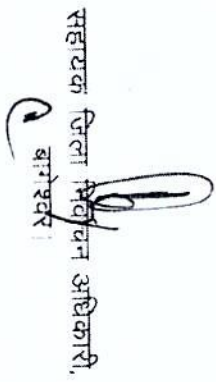 सहायक जिला निर्वाचन अधिकारी,
बागेश्वर।